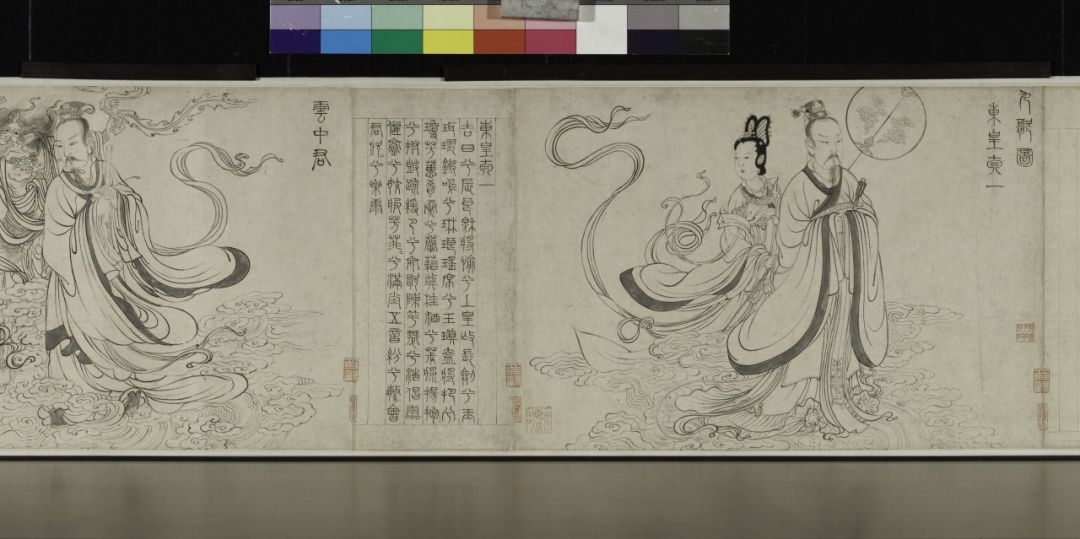 九歌圖
東皇太一
東皇太一
吉日兮辰良穆將愉兮上皇撫長劍兮玉
珥璆鏘鳴兮琳琅瑤席兮玉瑱盍將把兮
瓊芳蕙肴蒸兮蘭藉奠桂酒兮椒漿揚枹
兮拊鼓疏緩節兮安歌陳竽瑟兮浩倡靈
偃蹇兮姣服芳菲兮滿堂五音紛兮繁會
君欣兮樂康
雲中君